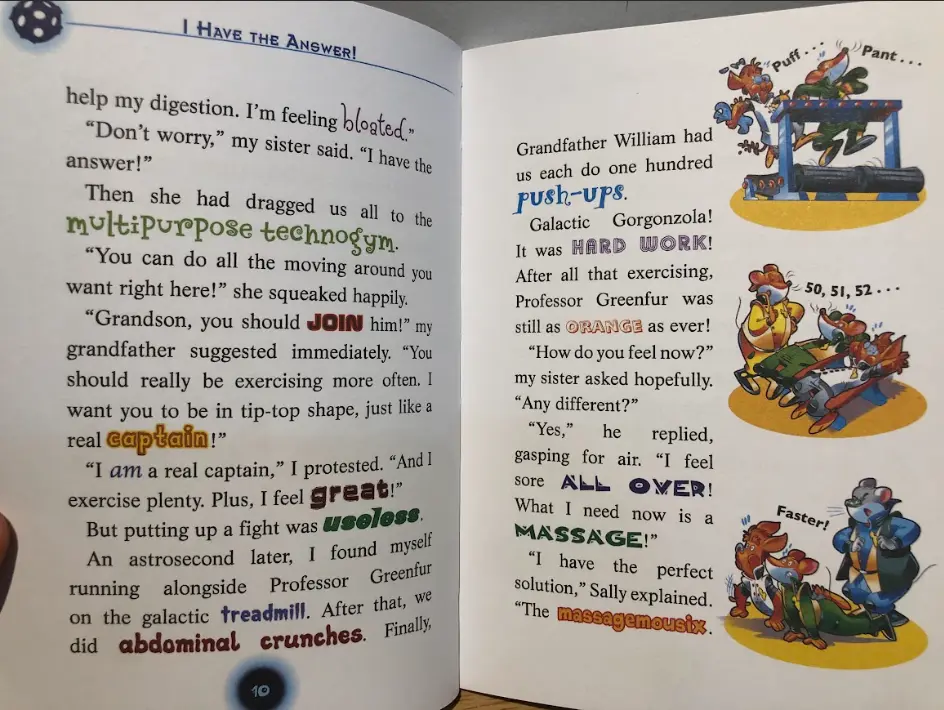 I HAVE THE ANSWER!
help my digestion. I'm feeling bloated."
"Don't worry," my sister said. "I have the
answer!"
Then she had dragged us all to the
multipurpose technogym.
"You can do all the moving around you
want right here!" she squeaked happily.
"Grandson, you should JOIN him!" my
grandfather suggested immediately. "You
should really be exercising more often. I
want you to be in tip-top shape, just like a
real captain!"
"I am a real captain," I protested. "And I
exercise plenty. Plus, I feel great!"
But putting up a fight was useless.
An astrosecond later, I found myself
running alongside Professor Greenfur
on the galactic treadmill. After that, we
did abdominal crunches. Finally,
10
Grandfather William had
us each do one hundred
push-ups.
Galactic Gorgonzola!
It was HARD WORK!
After all that exercising,
Professor Greenfur was
still as ORANGE as ever!
"How do you feel now?"
my sister asked hopefully.
"Any different?"
"Yes," he replied,
gasping for air. "I feel
sore ALL OVER!
What I need now is a
MASSAGE!"
"I have the perfect
solution," Sally explained.
"The massagemousix.
Puff...
Pant...
50, 51, 52...
Faster!